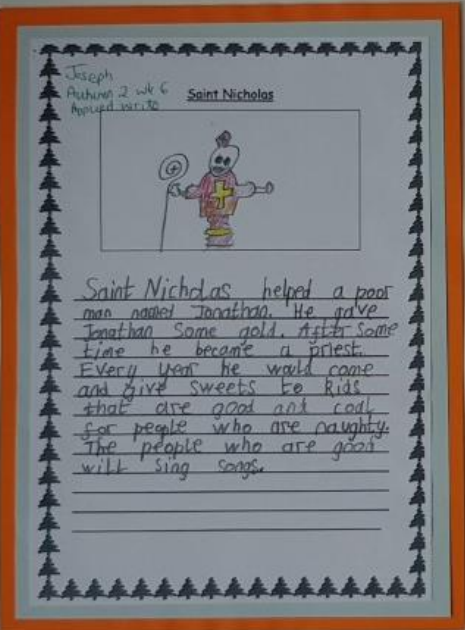 Joseph
Autumn 2 wk 6
Applied write
Saint Nicholas
Saint Nicholas helped a poor
man named Jonathan. He gave
Jonathan some gold. After some
time he became a priest.
Every year he would come
and give sweets to kids
that are good and coal
for people who are naughty.
The people who are good
will sing songs.